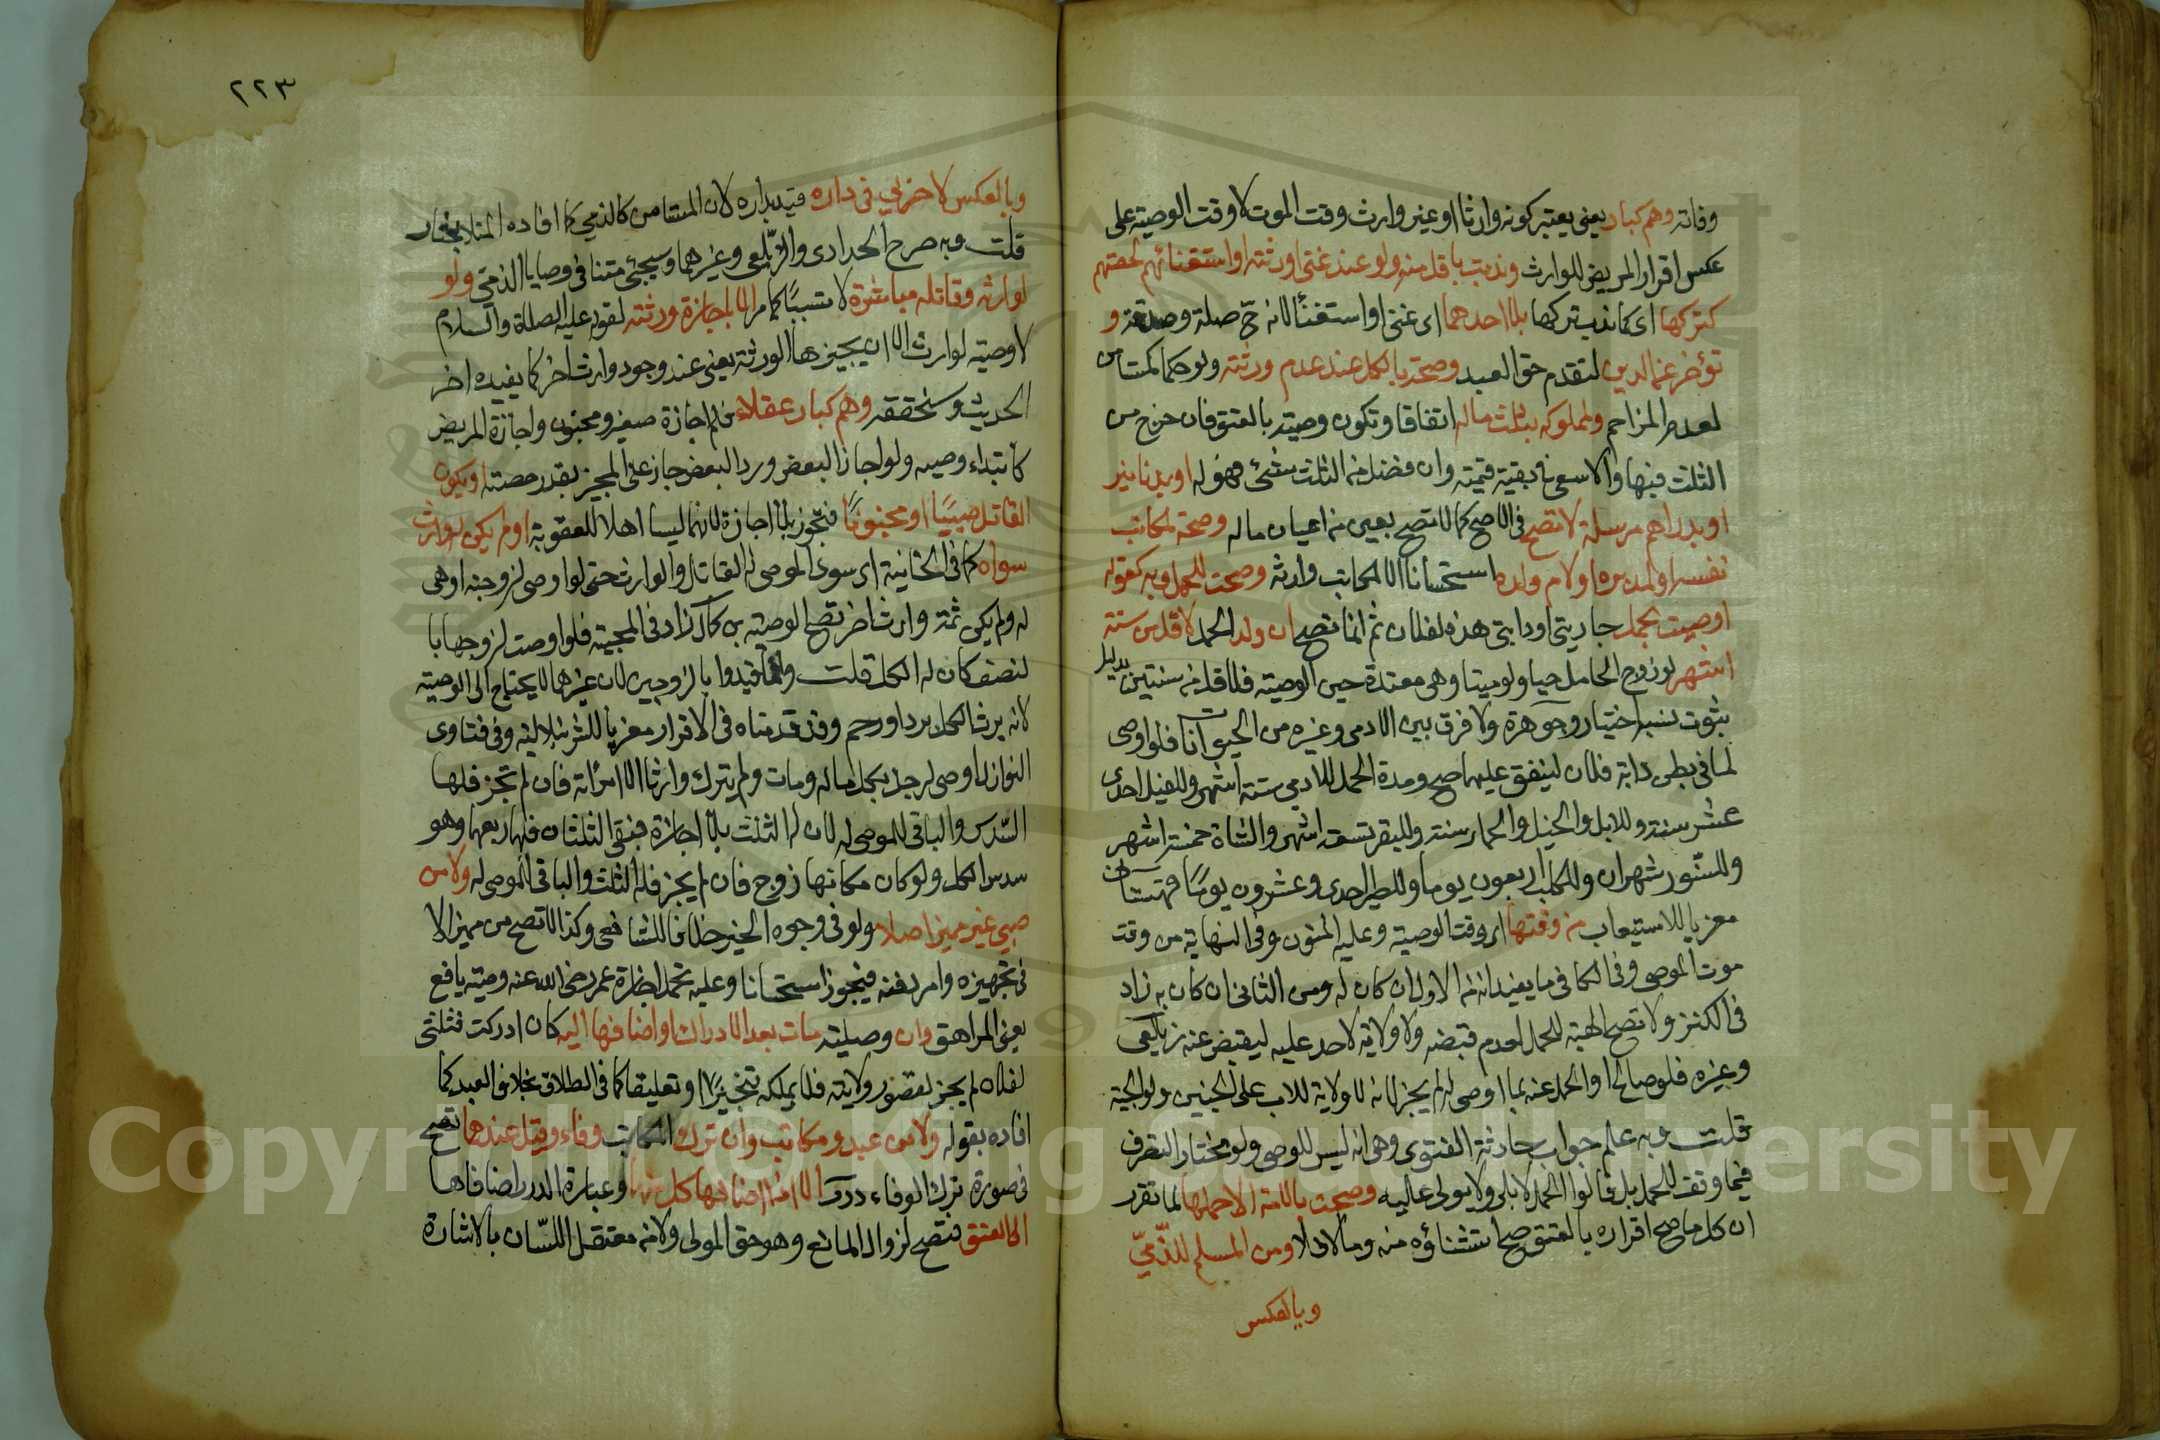 وفاته وهم كبار يعني يعتبر كونه وارثا او غير وارث وقت الموت لا وقت الوصية على
عكس اقرار المريض للوارث وندبت باقل منه ولو عند غنى ورثته او استغنائهم بحصتهم
كتركها اى كما ندب تركها بلا احدهما اى غنى او استغنا لانه ح صلة وصدقة و
تؤخر عن الدين لتقدم حق العبد وصحت بالكل عند عدم ورثته ولو حكما كمستامن
لعدم المزاحم ولمملوكه بثلث ماله اتفاقا وتكون وصية بالعتق فان خرج من
الثلث فبها والا سعى في بقية قيمته وان فضل من الثلث شئ فهو له او بدنانير
او بدراهم مرسلة لا تصح في الاصح كما لا تصح بعين من اعيان ماله وصحت لمكاتب
نفسه او لمدبره او لام ولده استحسانا لا لمكاتب وارثه وصحت للحمل وبه كقوله
اوصيت بحمل جاريتي او دابتي هذه لفلان ثم انما تصح ان ولد الحمل لاقل من ستة
اشهر لو زوج الحامل حيا ولو ميتا وهي معتدة حين الوصية فلاقل من سنتين بدليل
ثبوت نسبه اختيار وجوهرة ولا فرق بين الادمي وغيره من الحيوانات فلو اوصى
لما في بطن دابة فلان لينفق عليها صح ومدة الحمل للادمي ستة اشهر وللفيل احدى
عشر سنة وللابل والخيل والحمار سنة وللبقر تسعة اشهر والشاة خمسة اشهر
وللسنور شهران وللكلب اربعون يوما وللطير احدى وعشرون يوما قهستاني
معزيا للاستيعاب من وقتها اى وقت الوصية وعليه المتون وفي النهاية من وقت
موت الموصي وفي الكافي ما يفيد انه من الاول ان كان له ومن الثاني ان كان به زاد
في الكنز ولا تصح الهبة للحمل لعدم قبضه ولا ولاية لاحد عليه ليقبض عنه زيلعي
وغيره فلو صالح ابو الحمل عنه بما اوصى له لم يجز لانه لا ولاية للاب على الجنين ولوالجية
قلت وبه علم جواب حادثة الفتوى وهي انه ليس للوصي ولو مختارا التصرف
فيما وقف للحمل بل قالوا الحمل لا يلي ولا يولى عاليه وصحت بالامة الا حملها لما تقرر
ان كل ما صح افراده بالعقد صح استثناؤه منه وما لا فلا ومن المسلم للذمي
وبالعكس
٢٢٣
وبالعكس لا حربي في داره قيد بداره لان المستامن كالذمي كما افاده المنلا بحثا
قلت وبه صرح الحدادى والزيلعي وغيرهما وسيجئ متنا في وصايا الذمي ولو
لوارثه وقاتله مباشرة لا تسببا كما مر الا باجازة ورثته لقوله عليه الصلاة والسلام
لا وصية لوارث الا ان يجيزها الورثة يعني عند وجود وارث اخر كما يفيده اخر
الحديث وسنحققه وهم كبار عقلاء فلم تجز اجازة صغير ومجنون واجازة المريض
كابتداء وصية ولو اجاز البعض ورد البعض جاز على المجيز بقدر حصته او يكون
القاتل صبيا او مجنونا فتجوز بلا اجازة لانهما ليسا اهلا للعقوبة او لم يكن له وارث
سواه كما في الخانية اى سوى الموصى له القاتل او الوارث حتى لو اوصى لزوجته او هي
له ولم يكن ثمة وارث اخر تصح الوصية بن كمال زاد في المحبية فلو اوصت لزوجها با
لنصف كان له الكل قلت وانما قيدوا بالزوجين لان غيرهما لا يحتاج الى الوصية
لانه يرث الكل برد او رحم وقد قدمناه في الاقرار معزيا للشرنبلالية وفي فتاوى
النوازل اوصى لرجل بكل ماله ومات ولم يترك وارثا الا امراته فان لم تجز فلها
السدس والباقي للموصى له لان له الثلث بلا اجازة فبقي الثلثان فلها ربعهما وهو
سدس الكل ولو كان مكانها زوج فان لم يجز فله الثلث والباقي للموصى له ولا من
صبي غير مميز اصلا ولو في وجوه الخير خلافا للشافعي وكذا لا تصح من مميز الا
في تجهيزه وامر دفنه فيجوز استحسانا وعليه تحمل اجازة عمر رضي الله عنه وصية يافع
يعني المراهق وان وصيلته مات بعد الادراك او اضافها اليه كان ادركت فثلثي
لفلان لم يجز لقصور ولايته فلا يملكه تنجيزا وتعليقا كما في الطلاق بخلاف العبد كما
افاده بقوله ولا من عبد ومكاتب وان ترك المكاتب وفاء وقيل عندهما تصح
في صورة ترك الوفاء درر الا اذا اضافها كل منهما وعبارة الدرر اضافاها
الى العتق فتصح لزوال المانع وهو حق المولى ولا من معتقل اللسان بالاشارة